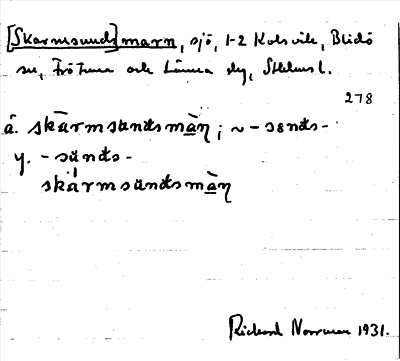 [Skarmsunds]marn, sjö, 1-2 Kolsvik, Blidö
sn, Frötuna och Länna skg, Sthlms l.
278
ä. skärmsundsmàn; ~-sends-
y. -sunds-
skärmsundsmàn
Rickard Norrman 1931.